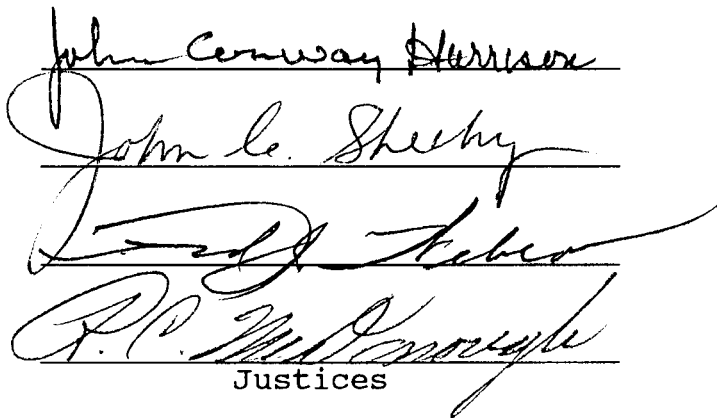 John Conway Harrison
John C. Sheehy
Weber
R. C. McDonough
Justices